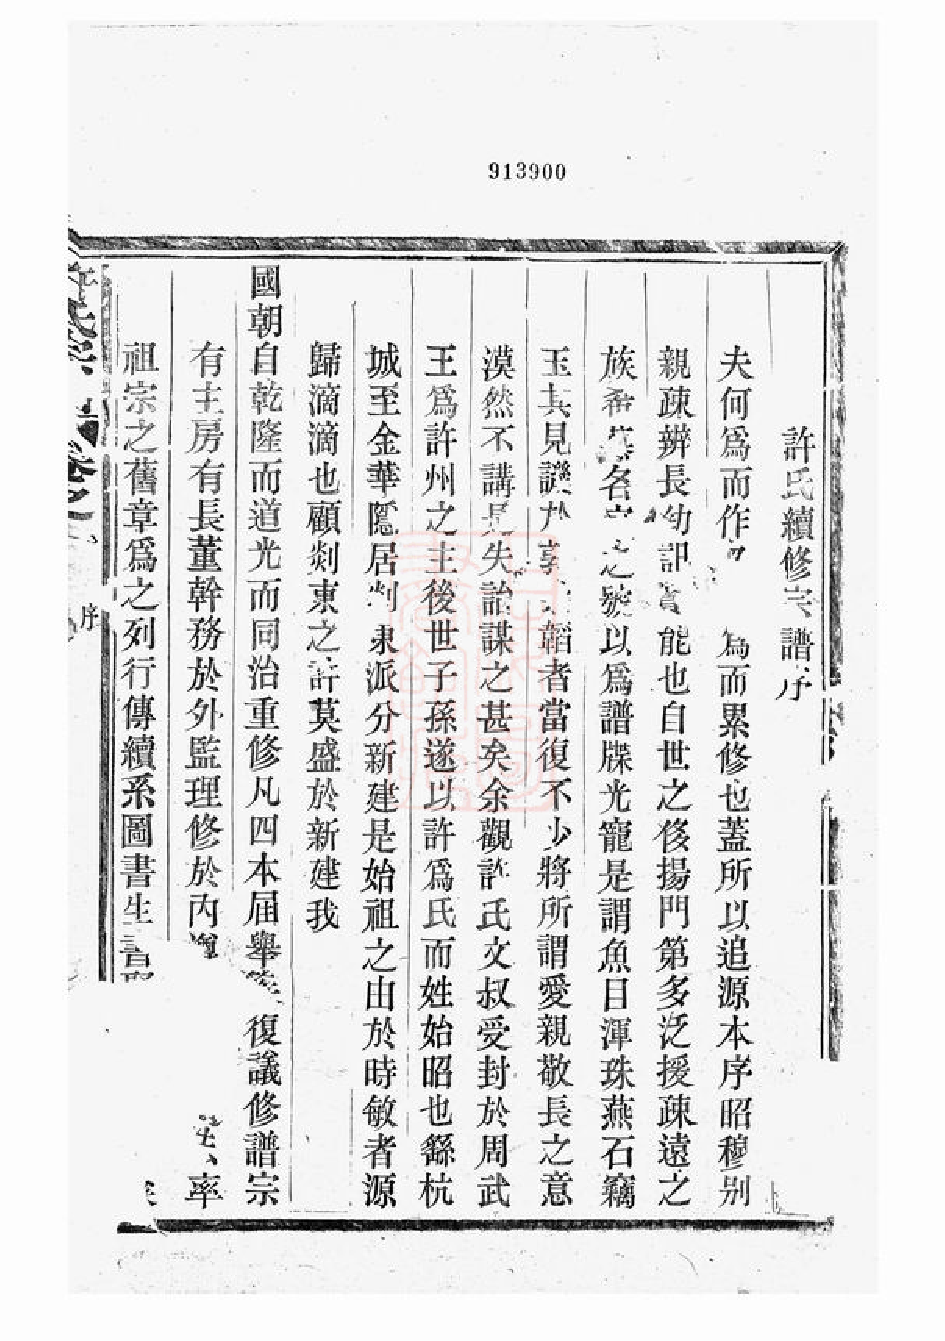 913900
許氏續修宗譜序
夫何爲而作 爲而累修也蓋所以追源本序昭穆別
親疎辨長幼記 能也自世之侈揚門第多泛援疎遠之
族 名 之 以爲譜牒光寵是謂魚目渾珠燕石竊
玉其見譏於 韜者當復不少將所謂愛親敬長之意
漠然不講是失詒謀之甚矣余觀許氏文叔受封於周武
王爲許州之主後世子孫遂以許爲氏而姓始昭也繇杭
城至金華隱居 隶派分新建是始祖之由於時敏者源
歸滴滴也顧剡東之許莫盛於新建我
國朝自乾隆而道光而同治重修凡四本届舉 復議修譜宗
有主房有長董幹務於外監理修於內 率
祖宗之舊章爲之列行傳續系圖書生書
許氏宗 卷之 序